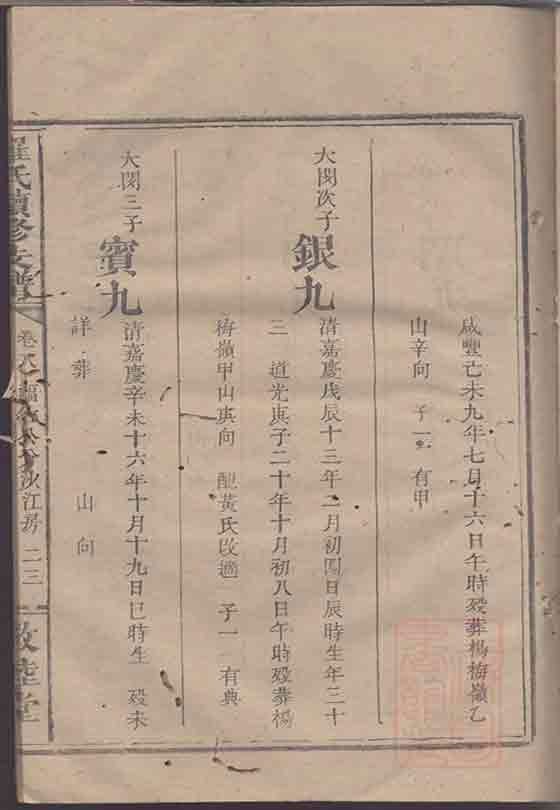 咸豐己未九年七月十六日午時殁葬楊梅嶺乙
山辛向 子一 有甲
大閔次子
銀九
清嘉慶戊辰十三年二月初四日辰時生年三十
三 道光庚子二十年十月初八日午時殁葬楊
梅嶺甲山庚向 配黃氏改適 子一 有典
大閔三子
賓九
清嘉慶辛未十六年十月十九日巳時生 殁未
詳 葬 山向
羅氏續修支譜
卷八
沙江房
二三
敦陸堂